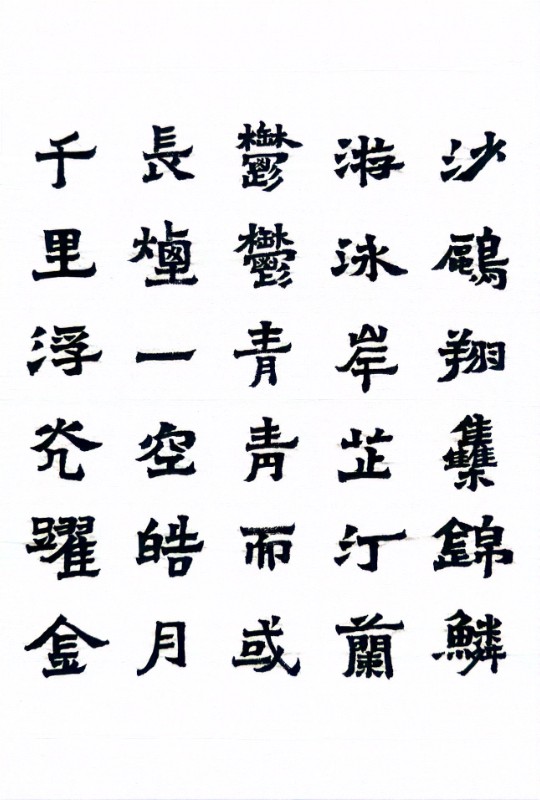 沙鷗翔雧錦鱗
游泳岸芷汀蘭
鬱鬱青青而或
長煙一空皓月
千里浮灮躍金